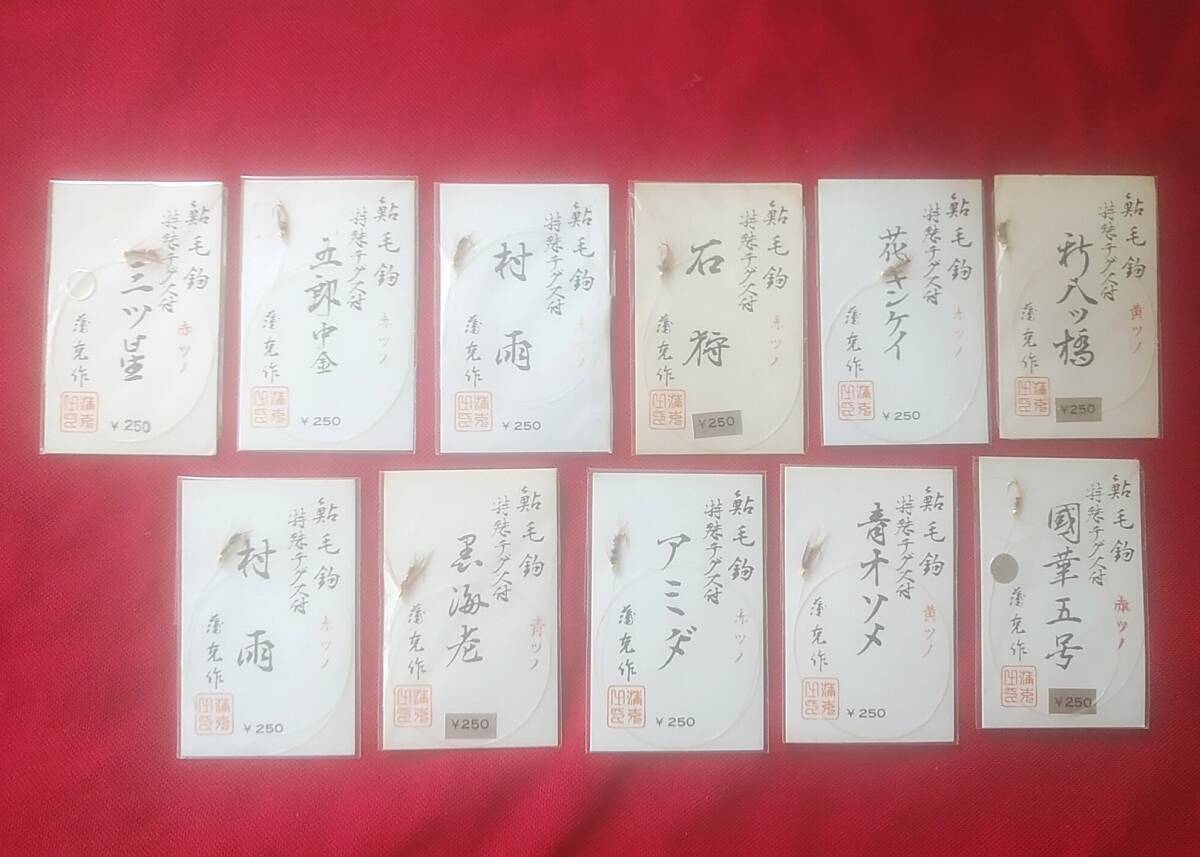 鮎毛鈎
特殊テグス付
三ツ星
赤ツノ
蒲克作
¥250
鮎毛鈎
特殊テグス付
五郎中金
赤ツノ
蒲克作
¥250
鮎毛鈎
特殊テグス付
村雨
赤ツノ
蒲克作
¥250
鮎毛鈎
特殊テグス付
石狩
赤ツノ
蒲克作
¥250
鮎毛鈎
特殊テグス付
花キンケイ
赤ツノ
蒲克作
¥250
鮎毛鈎
特殊テグス付
新八ツ橋
黄ツノ
蒲克作
¥250
鮎毛鈎
特殊テグス付
村雨
赤ツノ
蒲克作
¥250
鮎毛鈎
特殊テグス付
黒海老
青ツノ
蒲克作
¥250
鮎毛鈎
特殊テグス付
アミダ
赤ツノ
蒲克作
¥250
鮎毛鈎
特殊テグス付
青オソメ
黄ツノ
蒲克作
¥250
鮎毛鈎
特殊テグス付
國華五号
赤ツノ
蒲克作
¥250